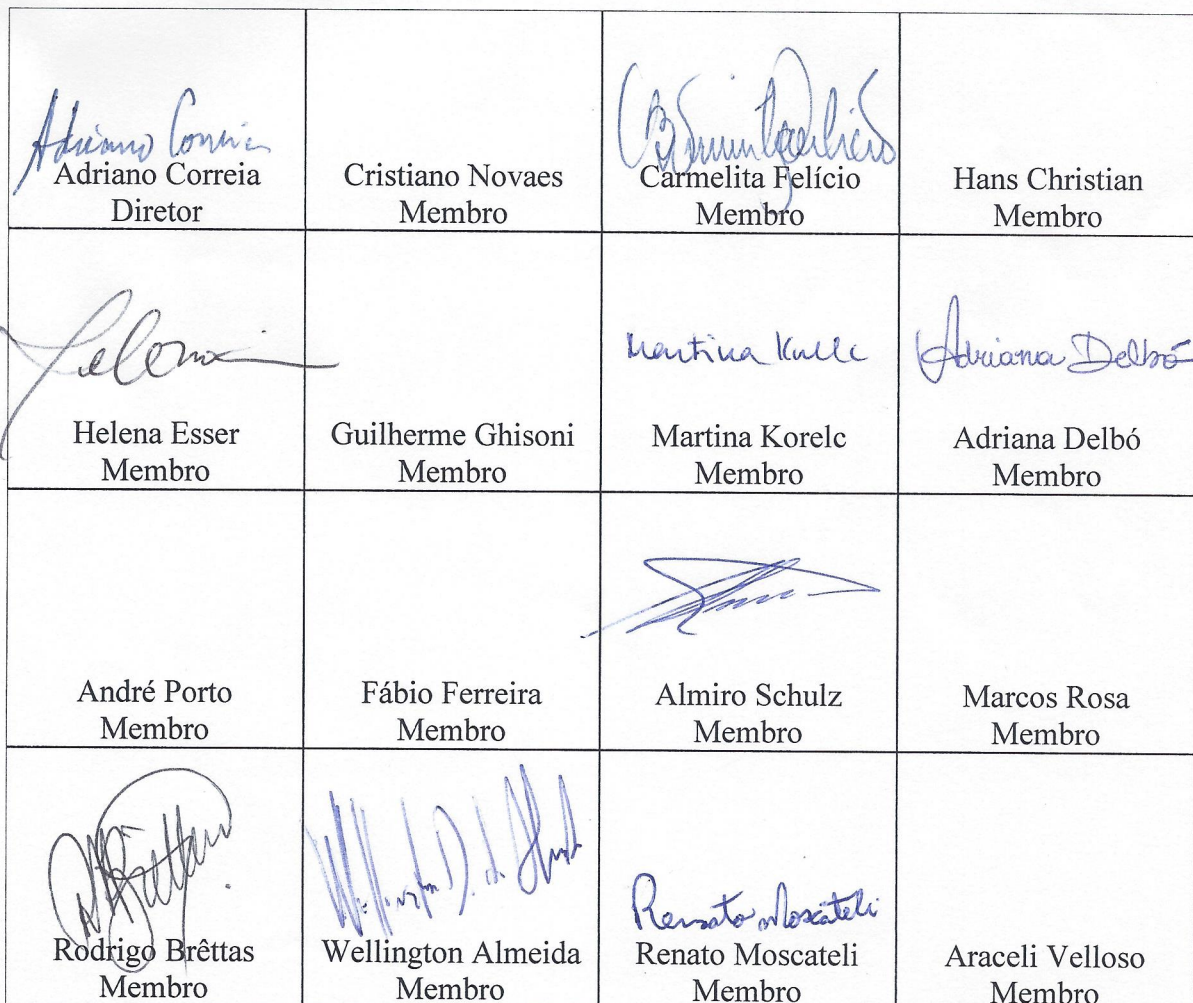 Adriano Correia
Adriano Correia
Diretor
Cristiano Novaes
Membro
Carmelita Felício
Membro
Hans Christian
Membro
Helena
Helena Esser
Membro
Guilherme Ghisoni
Membro
Martina
Martina Korelc
Membro
Adriana Delbó
Adriana Delbó
Membro
André Porto
Membro
Fábio Ferreira
Membro
Almiro Schulz
Membro
Marcos Rosa
Membro
Rodrigo Brêttas
Membro
Wellington D. de
Wellington Almeida
Membro
Renato Moscateli
Renato Moscateli
Membro
Araceli Velloso
Membro